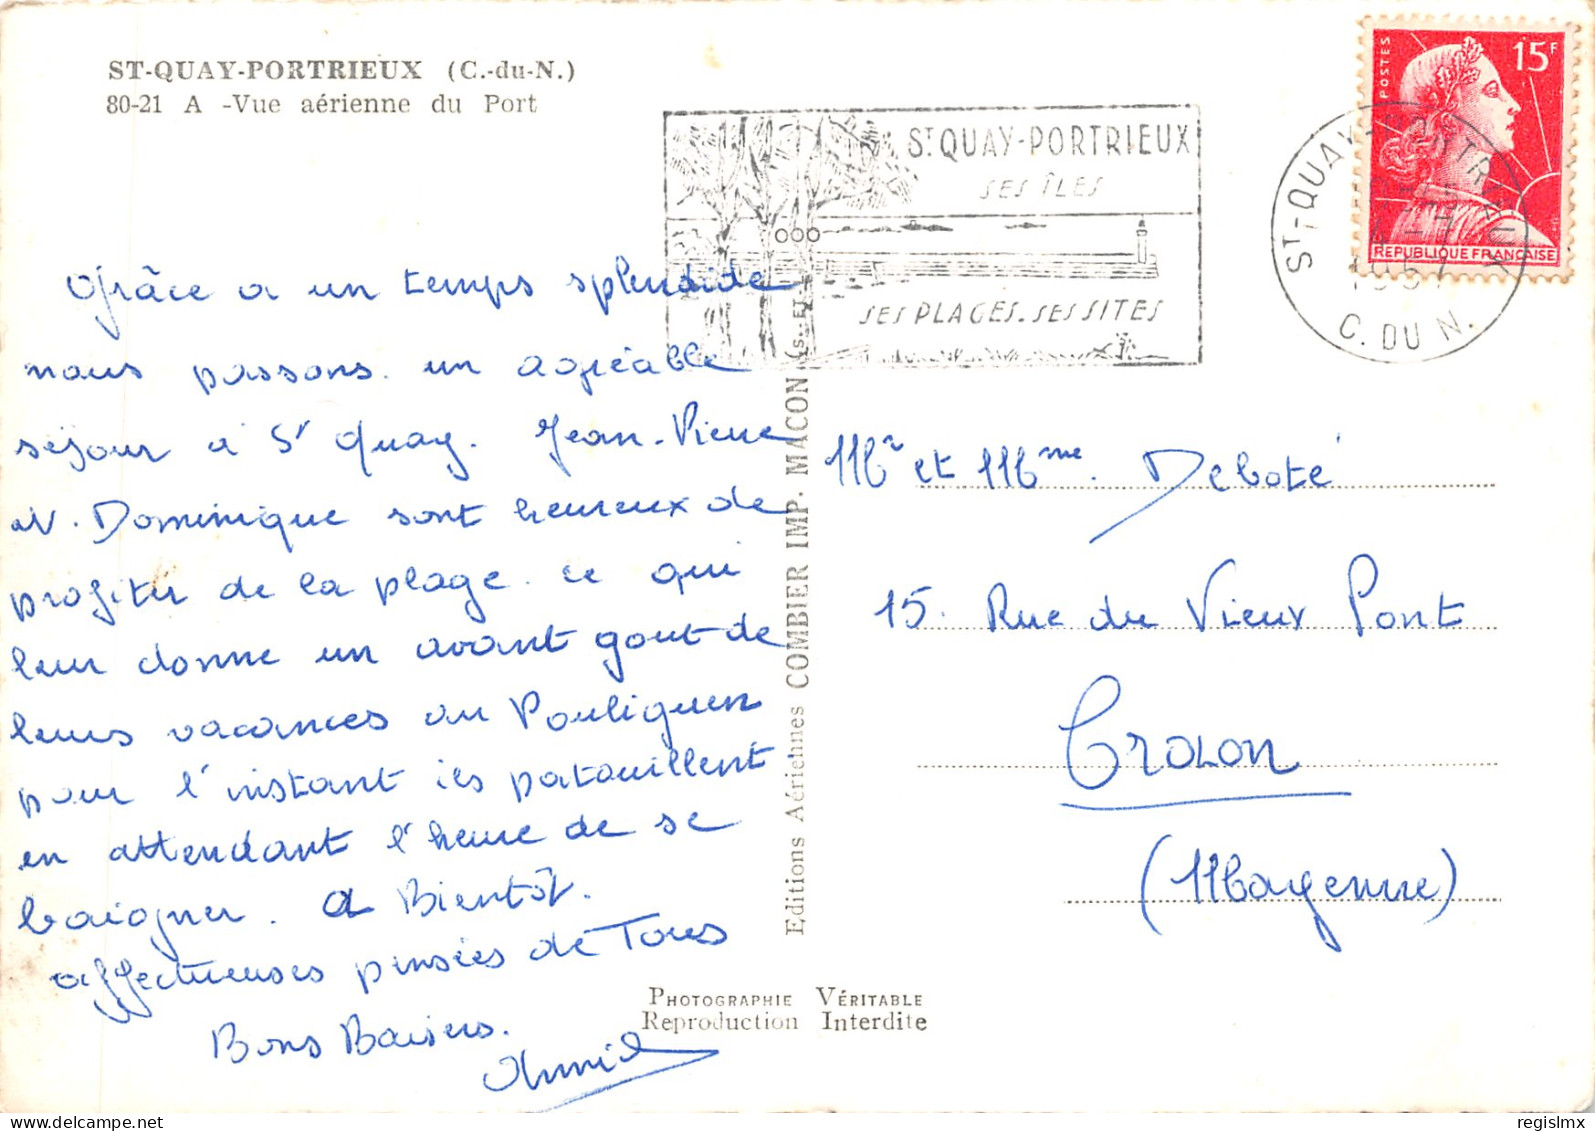 ST-QUAY-PORTRIEUX (C.-du-N.)
80-21 A -Vue aérienne du Port
Grâce a un temps splendide
nous passons un agréable
séjour à St Quay. Jean-Pierre
et Dominique sont heureux de
profiter de la plage. ce qui
leur donne un avant gout de
leurs vacances au Pouliguen
pour l'instant ils patouillent
en attendant l'heure de se
baigner. A Bientôt.
affectueuses pensées de Tous
Bons Baisers.
ST QUAY-PORTRIEUX
SES ÎLES
SES PLAGES. SES SITES
POSTES
15F
REPUBLIQUE FRANÇAISE
ST-QUAY-PORTRIEUX
1957
C. DU N.
Editions Aériennes COMBIER IMP. MACON (S.-ET-
Mr et Mme. Deboté
15. Rue du Vieux Pont
Craon
(Mayenne)
PHOTOGRAPHIE VÉRITABLE
Reproduction Interdite
delcampe.net
regislmx